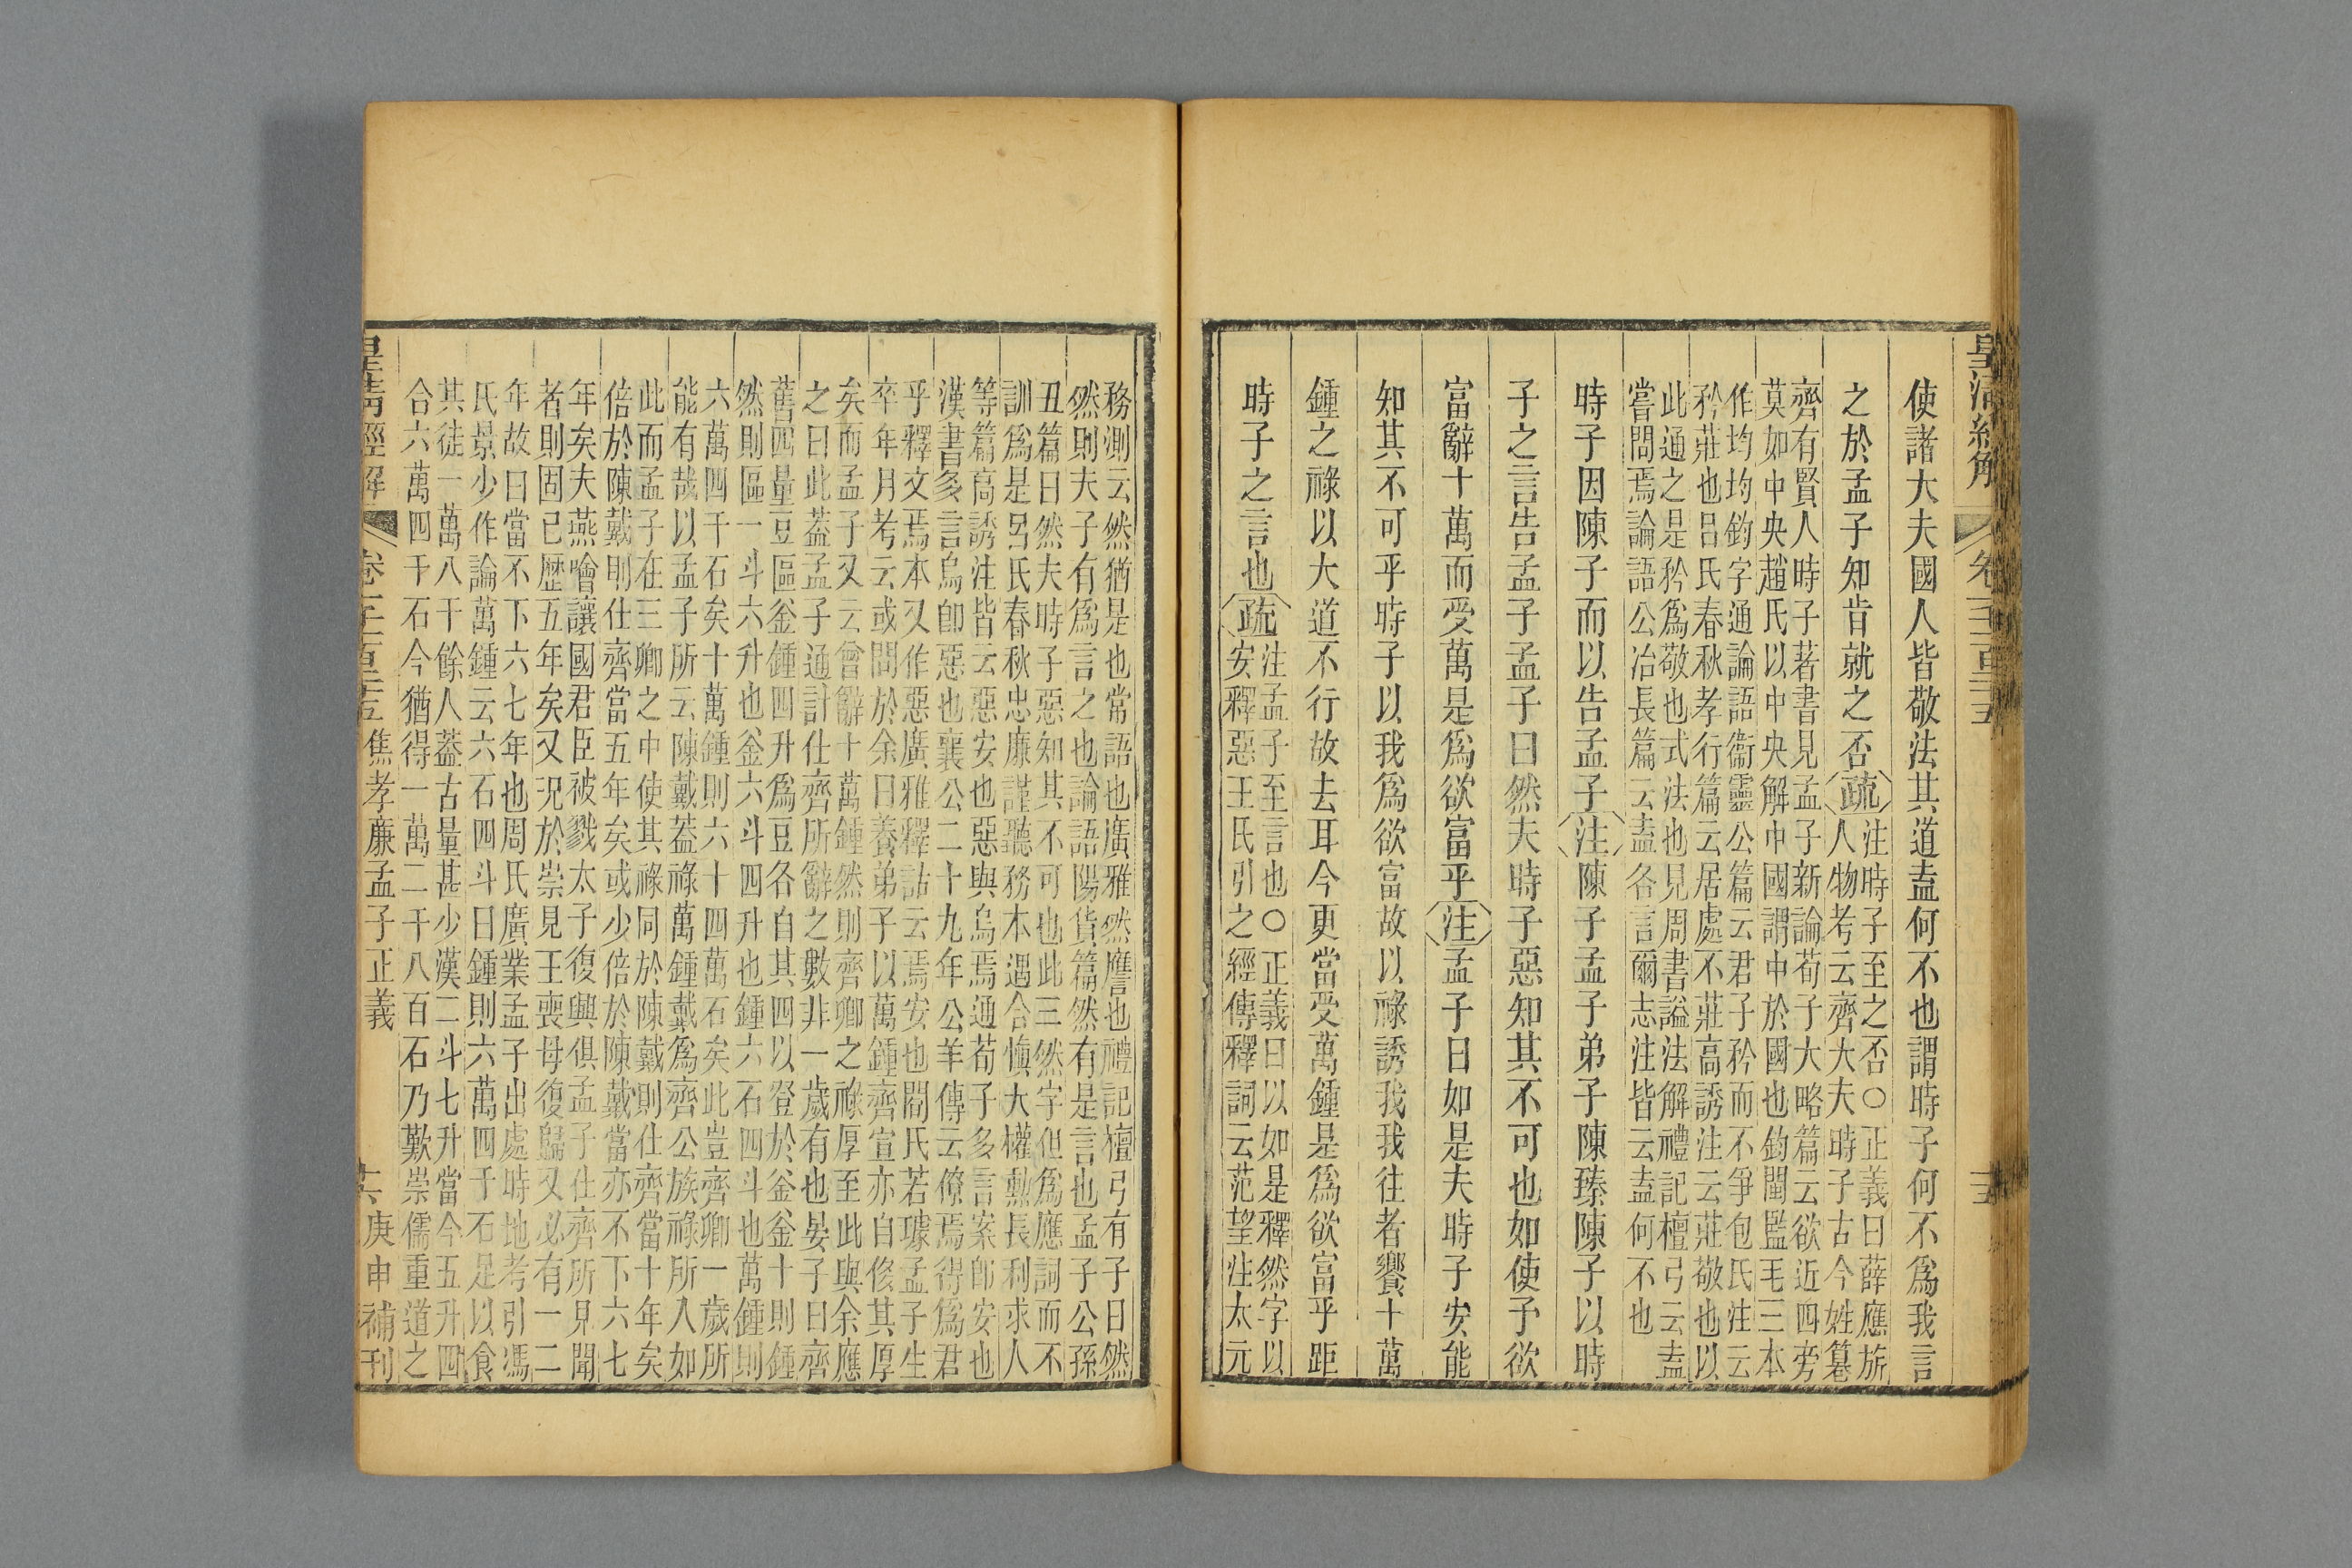 皇清經解
卷一千一百二十五
十五
使諸大夫國人皆敬法其道盍何不也謂時子何不爲我言
之於孟子知肯就之否疏
注時子至之否○正義曰薛應旂
人物考云齊大夫時子古今姓篹
齊有賢人時子著書見孟子新論荀子大略篇云欲近四旁
莫如中央趙氏以中央解中國謂中於國也鈞閩監毛三本
作均均鈞字通論語衞靈公篇云君子矜而不爭包氏注云
矜莊也呂氏春秋孝行篇云居處不莊高誘注云莊敬也以
此通之是矜爲敬也式法也見周書謚法解禮記檀弓云盍
嘗問焉論語公冶長篇云盍各言爾志注皆云盍何不也
時子因陳子而以告孟子注陳子孟子弟子陳臻陳子以時
子之言告孟子孟子曰然夫時子惡知其不可也如使予欲
富辭十萬而受萬是爲欲富乎注孟子曰如是夫時子安能
知其不可乎時子以我爲欲富故以祿誘我我往者饗十萬
鍾之祿以大道不行故去耳今更當受萬鍾是爲欲富乎距
時子之言也疏
注孟子至言也○正義曰以如是釋然字以
安釋惡王氏引之經傳釋詞云范望注太元
務測云然猶是也常語也廣雅然譍也禮記檀弓有子曰然
然則夫子有爲言之也論語陽貨篇然有是言也孟子公孫
丑篇曰然夫時子惡知其不可也此三然字但爲應詞而不
訓爲是呂氏春秋忠廉謹聽務本遇合愼大權勳長利求人
等篇高誘注皆云惡安也惡與烏焉通荀子多言案卽安也
漢書多言烏卽惡也襄公二十九年公羊傳云僚焉得爲君
乎釋文焉本又作惡廣雅釋詁云焉安也閻氏若璩孟子生
卒年月考云或問於余曰養弟子以萬鍾齊宣亦自侈其厚
矣而孟子又云曾辭十萬鍾然則齊卿之祿厚至此與余應
之曰此蓋孟子通計仕齊所辭之數非一歲有也晏子曰齊
舊四量豆區釜鍾四升爲豆各自其四以登於釜釜十則鍾
然則區一斗六升也釜六斗四升也鍾六石四斗也萬鍾則
六萬四千石矣十萬鍾則六十四萬石矣此豈齊卿一歲所
能有哉以孟子所云陳戴蓋祿萬鍾戴爲齊公族祿所入如
此而孟子在三卿之中使其祿同於陳戴則仕齊當十年矣
倍於陳戴則仕齊當五年矣或少倍於陳戴當亦不下六七
年矣夫燕噲讓國君臣被戮太子復興俱孟子仕齊所見聞
者則固已歷五年矣又況於崇見王喪母復歸又必有一二
年故曰當不下六七年也周氏廣業孟子出處時地考引馮
氏景少作論萬鍾云六石四斗曰鍾則六萬四千石足以食
其徒一萬八千餘人蓋古量甚少漢二斗七升當今五升四
合六萬四千石今猶得一萬二千八百石乃歎崇儒重道之
皇清經解
卷一千一百二十五
焦孝廉孟子正義
十六
庚申補刊